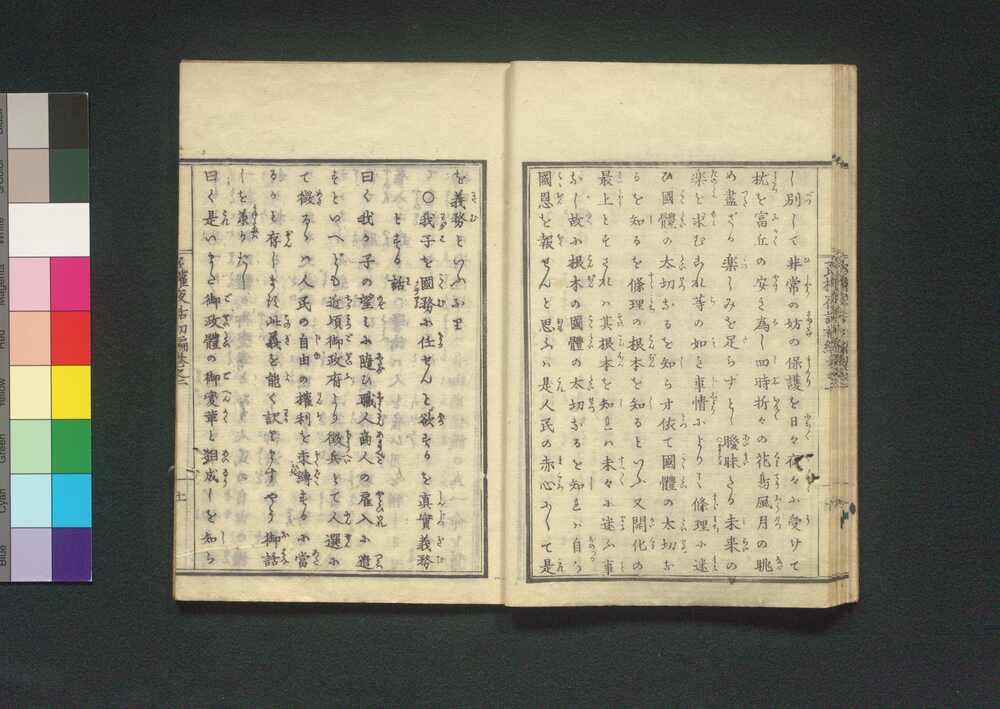 し別して非常の坊の保護を日々夜々に受けて
枕を富丘の安き為し四時折々の花鳥風月の眺
め盡ざる楽しみを足らずとし曖昧たる未来の
楽を求むこれ等の如き事情により条理に迷
ひ國體の太切なるを知らず依て國體の太切な
らを知るを條理の根本を知るといふ又開化の
最上とすされバ其根本を知れバ末々に迷ふ事
なし故に根本の國體の太切なるを知れバ自ら
國恩を報せんと思ふハ是人民の赤心にして是
を義務といふなり
〇我子を國務に任せんと欲するを真實義務
とする話
曰く我が子の望しに随ひ職人商人の雇入に遣
すといへども近頃御政府より徴兵として人選に
て徴るゝハ人民の自由の權利を束縛するに當
るかと存じます此義を能く訳ますやう御話
しを願ひたし
曰く是いまだ御政體の御変革と
成しを知ら
初編巻之二
十一
Black
White
Magenta
Red
Yellow
Green
Cyan
Blue